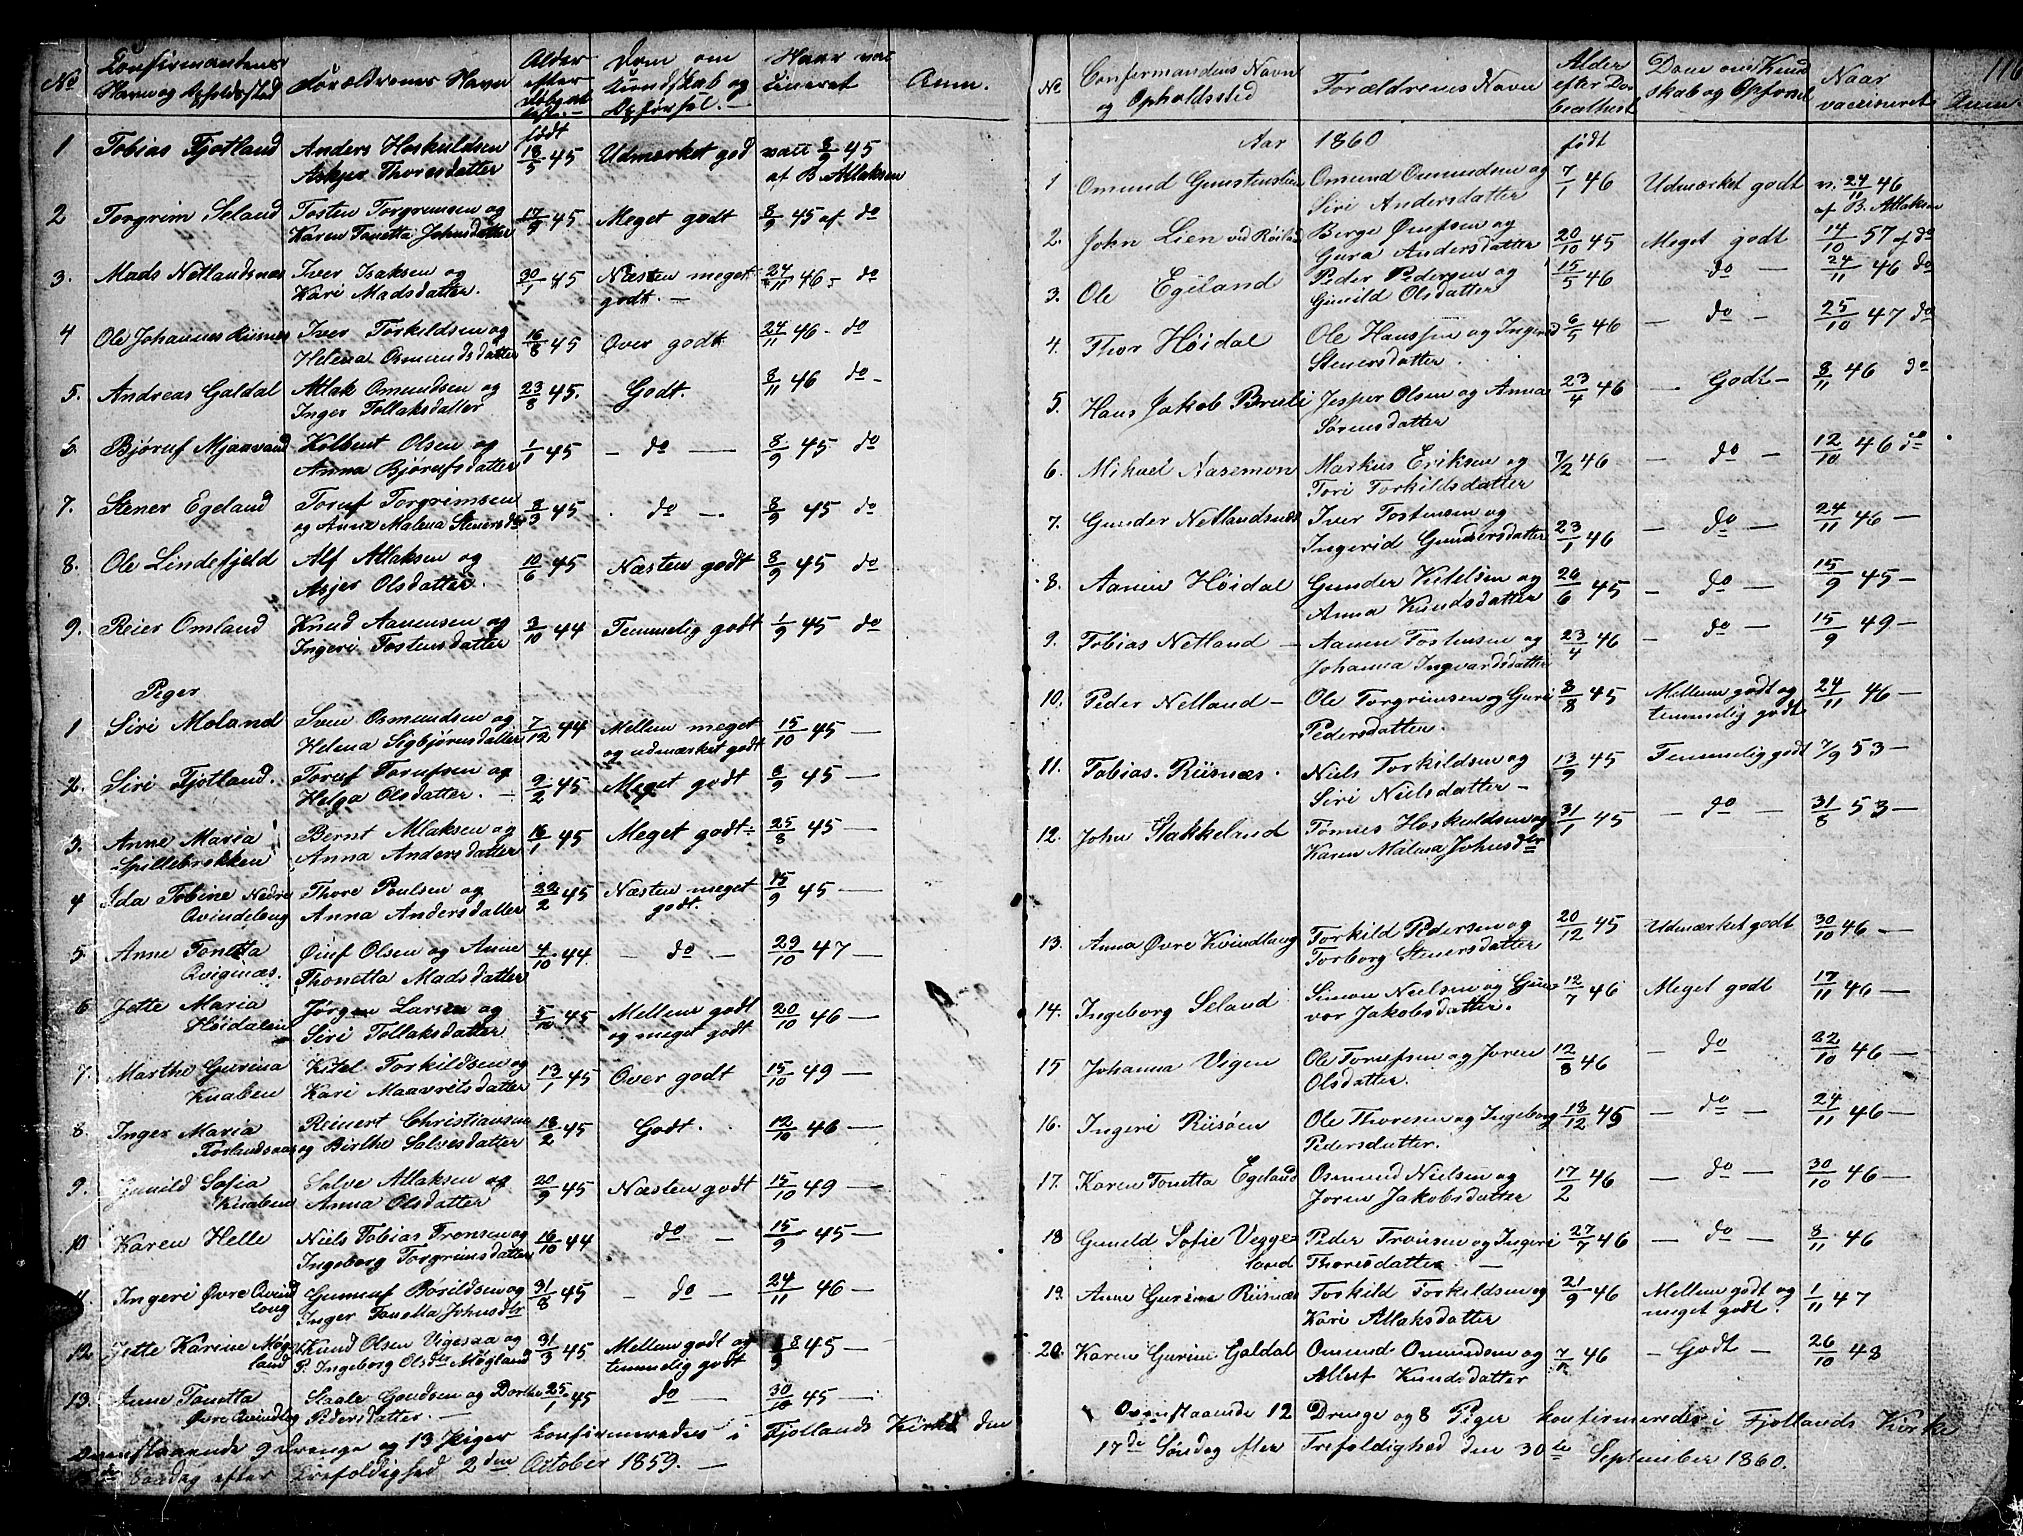 No
Confirmandens
Navn og Opholdssted
Forældrenes Navn
Alder
efter
Døbeat
test.
Dom om
Kundskab og
Opførsel.
Naar vac
cineret
Anm.
født
1 Tobias Fjotland Anders Hoskuldsen 18/5 45 Udmærket god vatt 8/9 45
Asbjer Thoresdatter af B. Atlaksen
2 Torgrim Seland Tosten Torgrimsen og 17/9 45 Meget godt 8/9 45 af do
Karen Tonetta Johnsdatter
3. Mads Netlandsnæs Iver Isaksen og 30/1 45 Næsten meget 24/11 46 - do
Kari Madsdatter. godt. -
4 Ole Johannes Riisnes Iver Torkildsen og 16/8 45 Over godt 24/11 46 - do
Helena Osmundsdatter
5. Andreas Galdal Atlak Omundsen og 23/8 45. Godt. 8/11 46 do
Inger Tollaksdatter
6. Bjøruf Mjaavand Kolbent Olsen og 1/1 45 - do - 8/9 45 do
Anna Bjørufsdatter
7. Stener Egeland Toruf Torgrimsen 8/3 45 - do - 8/9 45 do
og Anna Malena Stenersdtr
8. Ole Lindefjeld Alf Atlaksen og 10/6 45 Næsten godt 8/9 45 do
Asjer Olsdatter.
9. Reier Omland Knud Aanensen og 3/10 44 Temmelig godt 1/9 45 do
Ingeri Tostensdatter
Piger
1 Siri Moland Sven Osmundsen og 7/12 44 Mellem meget 15/10 45 -
Helena Sigbjørnsdatter og udmærket godt
2. Siri Fjotland. Toruf Torufsen og 2/2 45 Meget godt 8/9 45 -
Helga Olsdatter. -
3. Anne Maria Bernt Atlaksen og 16/1 45 Meget godt 25/8 45 -
Spillebrokken Anna Andersdatter
4 Ida Tobine Nedre Thore Poulsen og 22/2 45 Næsten meget 15/9 45 -
Qvindelaug Anna Andersdatter godt.
5 Anne Tonetta Øiuf Olsen og Anne 4/10 44 - do - 23/10 47 -
Qviginæs. Thonetta Madsdatter
6 Jette Maria Jørgen Larsen og 5/10 45 Mellem godt 20/10 46 -
Høidalen Siri Tollaksdatter og meget godt
7. Marthe Gurina Kitel Torkildsen og 13/1 45 Over godt 15/10 49 -
Knaben Kari Maavritsdatter
8. Inger Maria Reinert Christiansen 18/2 45 Godt. 12/10 46 -
og Birthe Salvesdatter
9. Gunild Sofia Salve Atlaksen og 20/9 45 Næsten godt 15/10 49 -
Knaben Anna Olsdatter
10 Karen Helle Niels Tobias Tronsen og 16/10 44 do - 15/9 45 -
Ingeborg Torgrimsdatter
11. Ingeri Øvre Qvind Gunnuf Børuldsen og 31/8 45 - do - 24/11 46 -
laug Inger Tonetta Johnsdtr
12 Jette Karine Møg Knud Olsen Vigesaa og 31/3 45 Mellem godt og 45 -
land P. Ingeborg Olsdtr Møgland temmelig godt
13. Anne Tonetta Staale Gundsen og Dorthe 25/1 45 do - 30/10 45 -
Øvre Qvindlog Pedersdatter. -
Ovenstaaende 9 Drenge og 13 Piger konfirmeredes i Fjotlands Kirke den
Søndag efter Trefoldighed 2den October 1859. -
No Confirmandens Navn
og Opholdssted
Forældrenes Navn
Alder
efter Dø-
beattest
Dom om Kund
skab og Opførsel
Naar
vaccineret
Anm.
116
Aar 1860 født
1 Omund Omundsen og 7/1 46 Udmærket godt v. 24/11 46
Siri Andersdatter af B. Atlaksen
2. John Lien ved Røiland Berge Øiufsen og 20/10 45 Meget godt 14/10 57 af do
Gura Andersdatter
3. Ole Egeland Peder Pedersen og 15/5 46 do - 24/11 46 do
Gunild Olsdatter
4. Thor Høidal Ole Hanssen og Ingerid 6/5 46 - do - 25/10 47 do
Stenersdatter
5. Hans Jakob Breili Jesper Olsen og Anna 23/4 46 - Godt - 8/11 46 do
Sørensdatter
6. Mikael Næsemon Markus Eriksen og 7/2 46 - do - 12/10 46 do
Tori Torkildsdatter
7. Gunder Netlandsnæs Iver Tostensen og 23/1 46 - do - 24/11 46 -
Ingerid Gundersdatter
8. Aanen Høidal Gunder Kitelsen og 26/6 45 - do - 15/9 45 -
Anna Knudsdatter
9. Tobias Netland - Aanen Tostensen og 23/4 46 - do - 15/9 49 -
Johanna Ingvardsdatter
10. Peder Netland - Ole Torgrimsen og Guri 8/8 45 Mellem godt og 24/11 46 -
Pedersdatter. temmelig godt
11. Tobias Riisnæs. Niels Torkildsen og 13/9 45 Temmelig godt 7/9 53 -
Siri Nielsdatter -
12. John Stakkeland Tomas Hoskuldsen og 31/1 45 - do - 31/8 53 -
Karen Malena Johnsdtr
13. Anna Øvre Kvindlaug Torkild Pedersen og 20/12 45 Udmærket godt 30/10 46 -
Torborg Stenersdatter
14. Ingeborg Seland Simon Nielsen og Gun- 12/7 46 Meget godt 17/11 46 -
vor Jakobsdatter.
15 Johanna Vigen Ole Torufsen og Joren 12/8 46 - do 22/10 46 -
Olsdatter.
16. Ingeri Riisøen Ole Thoresen og Ingeborg 18/12 45 - do - 24/11 46 -
Pedersdatter.
17. Karen Tonetta Egeland Osmund Nielsen og 17/2 46 - do - 30/10 46 -
Joren Jakobsdatter
18 Gunild Sofie Vegge- Peder Tronsen og Ingeri 27/7 46 - do - 8/11 46
land Thoresdatter -
19. Anne Gurine Riisnæs Torkild Torkildsen og 21/9 46 Mellem godt og 1/11 47
Kari Atlaksdatter meget godt.
20. Karen Gurine Galdal Omund Omundsen og 46 - Godt - 26/10 48
Knudsdatter
Ovenstaaende 12 Drenge og 8 Piger konfirmeredes i Fjotlands Kirke
17de Søndag efter Trefoldighed den 30te September 1860.